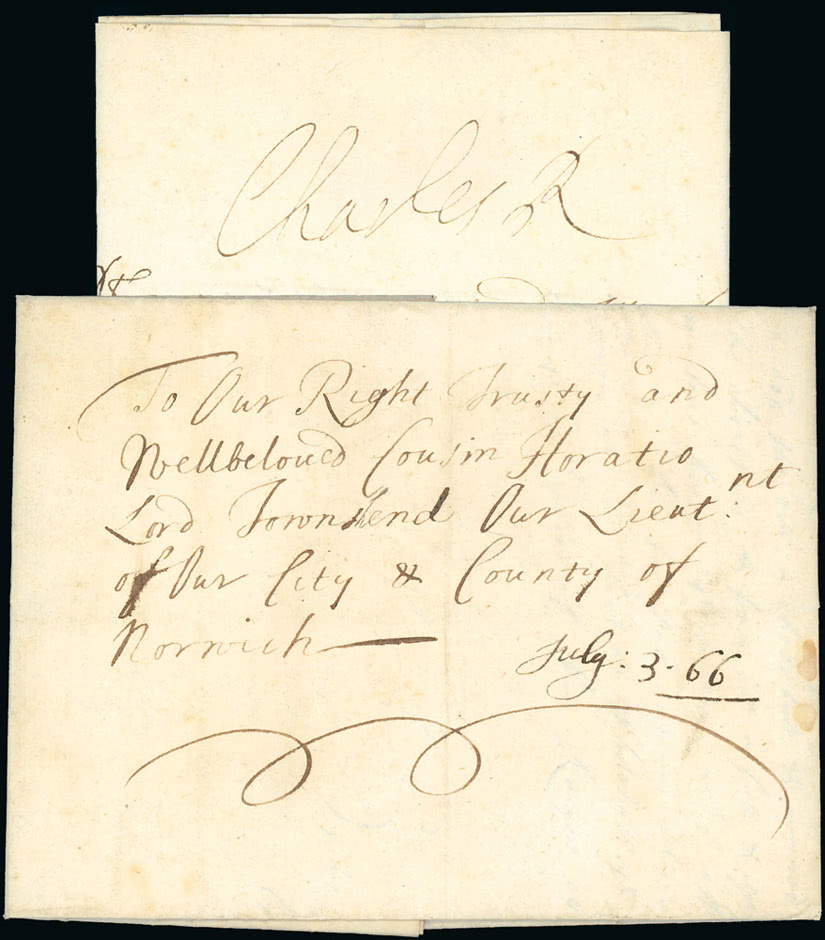 Charles R
To Our Right Trusty and
Wellbeloued Cousin Horatio
Lord Townshend Our Lieut:nt
of Our City & County of
Norwich
July: 3. 66